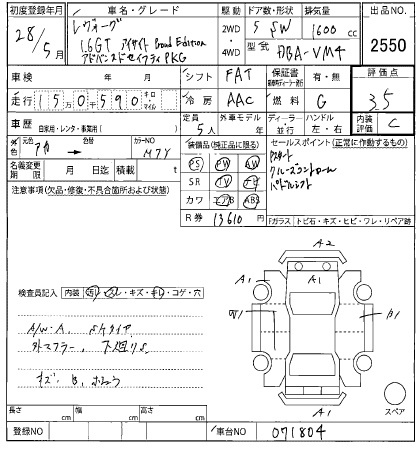 初度登録年月 車名・グレード 駆動 ドア数・形状 排気量 出品NO.
28/5月 レヴォーグ 2WD 4WD 5 SW 1600cc 2550
1.6GT アイサイト Proud Edition
アドバンスドセイフティPKG 型式 DBA-VM4
車検 年 月 シフト FAT 保証書 有・無 評価点
走行 150590 キロ マイル 冷房 AAC 燃料 G 3.5
車歴 自家用・レンタ・事業用( ) 定員 5人 外車モデル 年 ディーラー 並行 ハンドル 左・右 内装評価 C
外色 元色 アカ 色替 カラーNO M7Y
名義変更期限 月 日迄 積載 t
装備品(純正品に限る)
PS PW
SR TV ナビ
カワ エアB ABS
R券 13610円
セールスポイント(正常に作動するもの)
Pスタート
クルーズコントロール
パドルシフト
注意事項(欠品・修復・不具合箇所および状態)
Fガラス トビ石・キズ・ヒビ・ワレ・リペア跡
A2
A1 A1 A1
W1 B1
A1
スペア
検査員記入 内装 汚レ・スレ・キズ・キレ・コゲ・穴
A/W・A.
外マフラー. 下廻りS
キズ・B.
長さ cm 幅 cm 高さ cm
登録NO 車台NO 071804